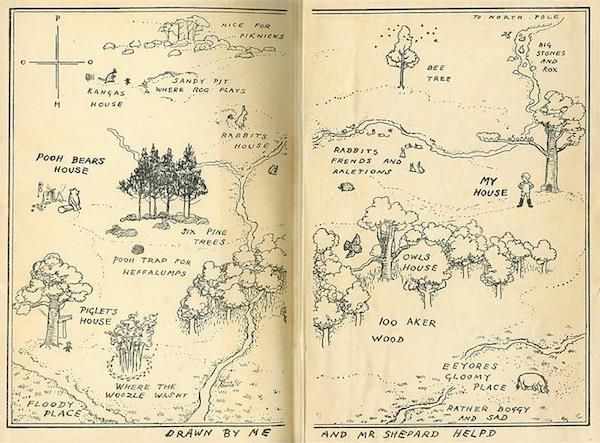 NICE FOR
PIKNICKS
TO NORTH POLE
P
O O
H
BIG
STONES
AND
ROX
BEE
TREE
KANGAS
HOUSE
SANDY PIT
WHERE ROO PLAYS
RABBITS
HOUSE
POOH BEARS
HOUSE
RABBITS
FRENDS AND
RALETIONS
MY
HOUSE
SIX PINE
TREES
POOH TRAP FOR
HEFFALUMPS
OWLS
HOUSE
PIGLETS
HOUSE
100 AKER
WOOD
WHERE THE
WOOZLE WASNT
FLOODY
PLACE
EEYORES
GLOOMY
PLACE
RATHER BOGGY
AND SAD
DRAWN BY ME AND MR SHEPARD HELPD